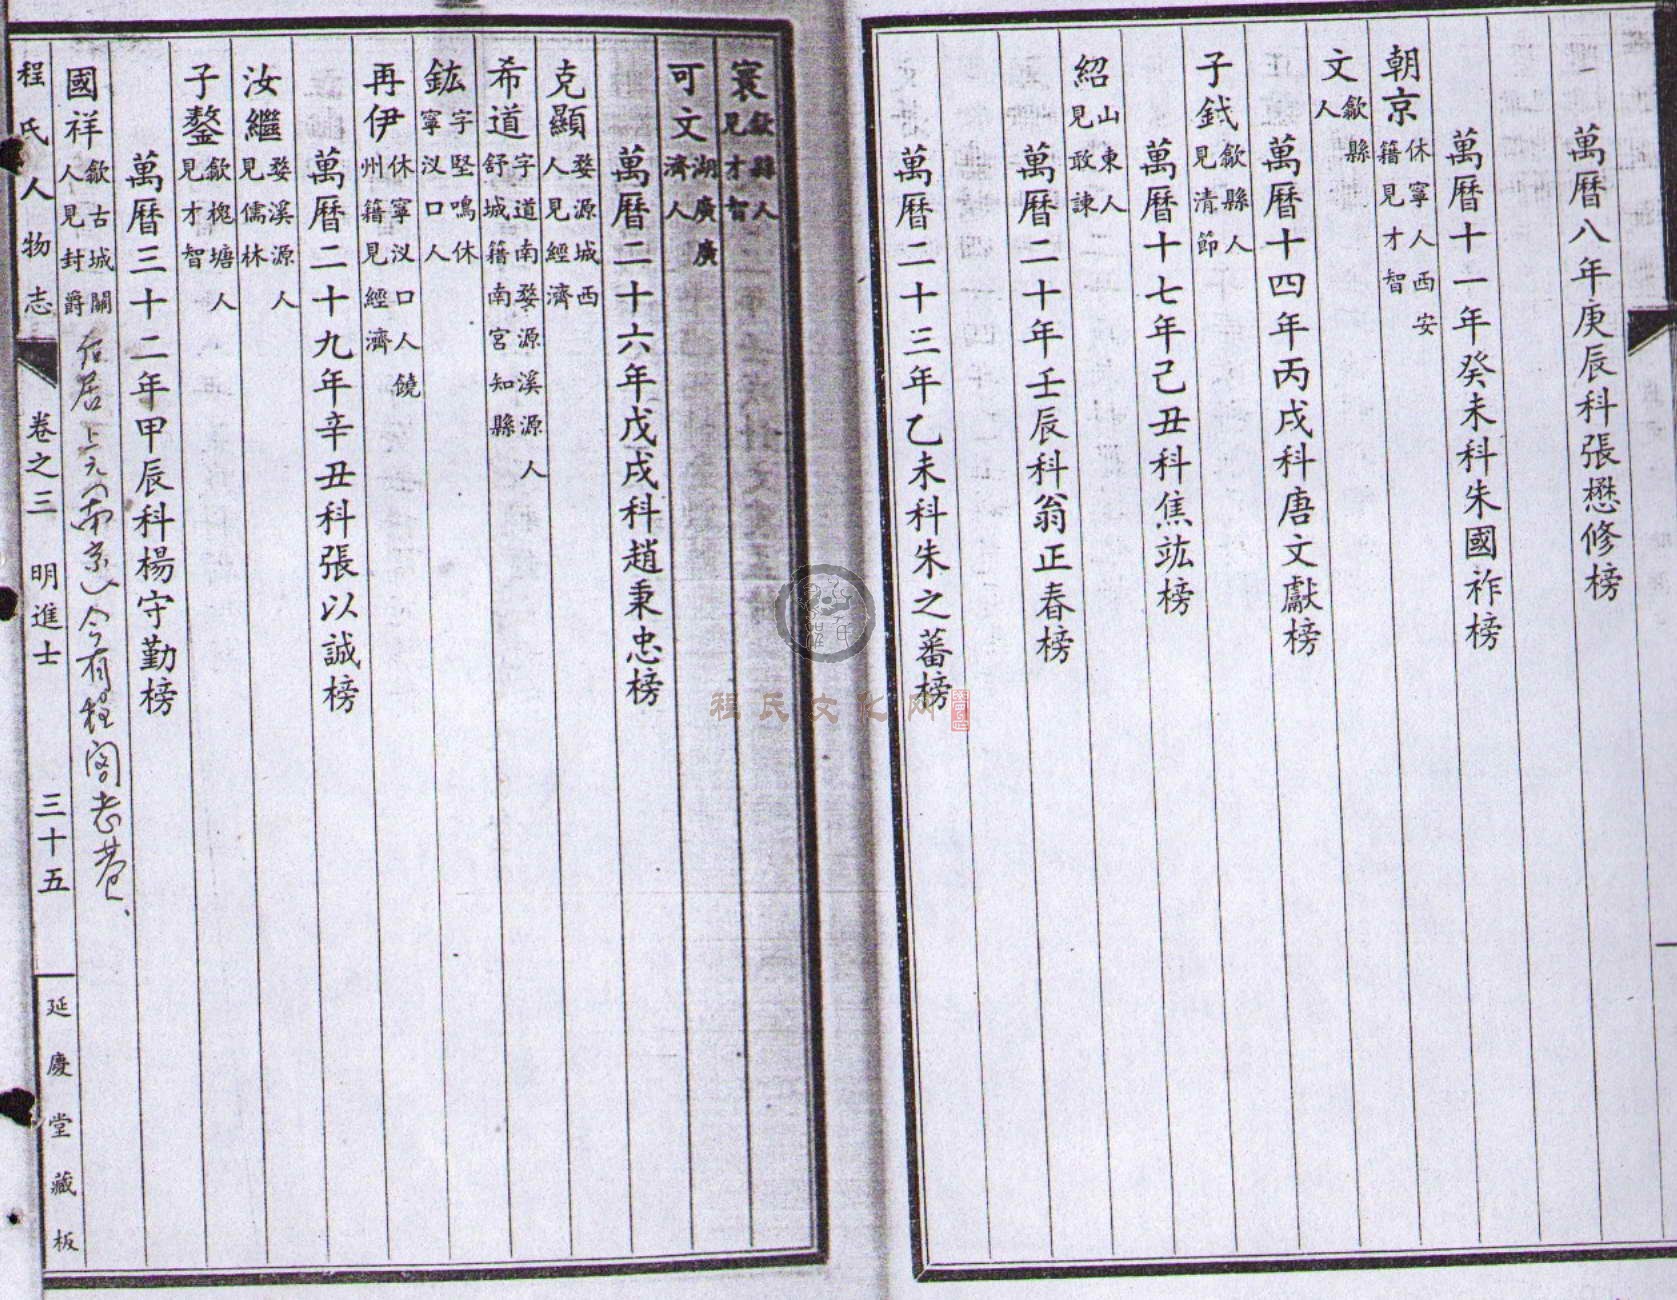 萬曆八年庚辰科張懋修榜
萬曆十一年癸未科朱國祚榜
朝京 休寧人西安籍見才智
文 歙縣人
萬曆十四年丙戌科唐文獻榜
子鉞 歙縣人見清節
萬曆十七年己丑科焦竑榜
紹 山東人見敢諫
萬曆二十年壬辰科翁正春榜
萬曆二十三年乙未科朱之蕃榜
寰 歙縣人見才智
可文 湖廣廣濟人
萬曆二十六年戊戌科趙秉忠榜
克顯 婺源城西人見經濟
希道 字道南婺源溪源人舒城籍南宮知縣
鈜 字堅鳴休寧汊口人
再伊 休寧汊口人饒州籍見經濟
萬曆二十九年辛丑科張以誠榜
汝繼 婺溪源人見儒林
子鏊 歙槐塘人見才智
萬曆三十二年甲辰科楊守勤榜
國祥 歙古城關人見封爵 后居上元(南京)今有程閣老巷、
程氏人物志 卷之三 明進士 三十五 延慶堂藏板
程氏文化网